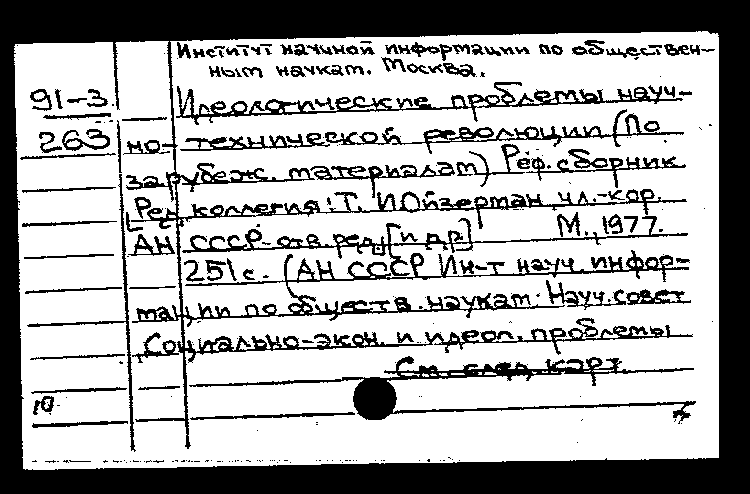 Институт научной информации по обществен-
ным наукам. Москва.
91-3
263
Идеологические проблемы науч-
но-технической революции (По
зарубеж. материалам) Реф. сборник
[Ред. коллегия: Т. И Ойзерман, чл.-кор.
АН СССР-отв. ред., [и др.] М., 1977.
251 с. (АН СССР Ин-т науч. инфор-
мации по обществ. наукам. Науч. совет
"Социально-экон. и идеол. проблемы
См. след. карт.
10